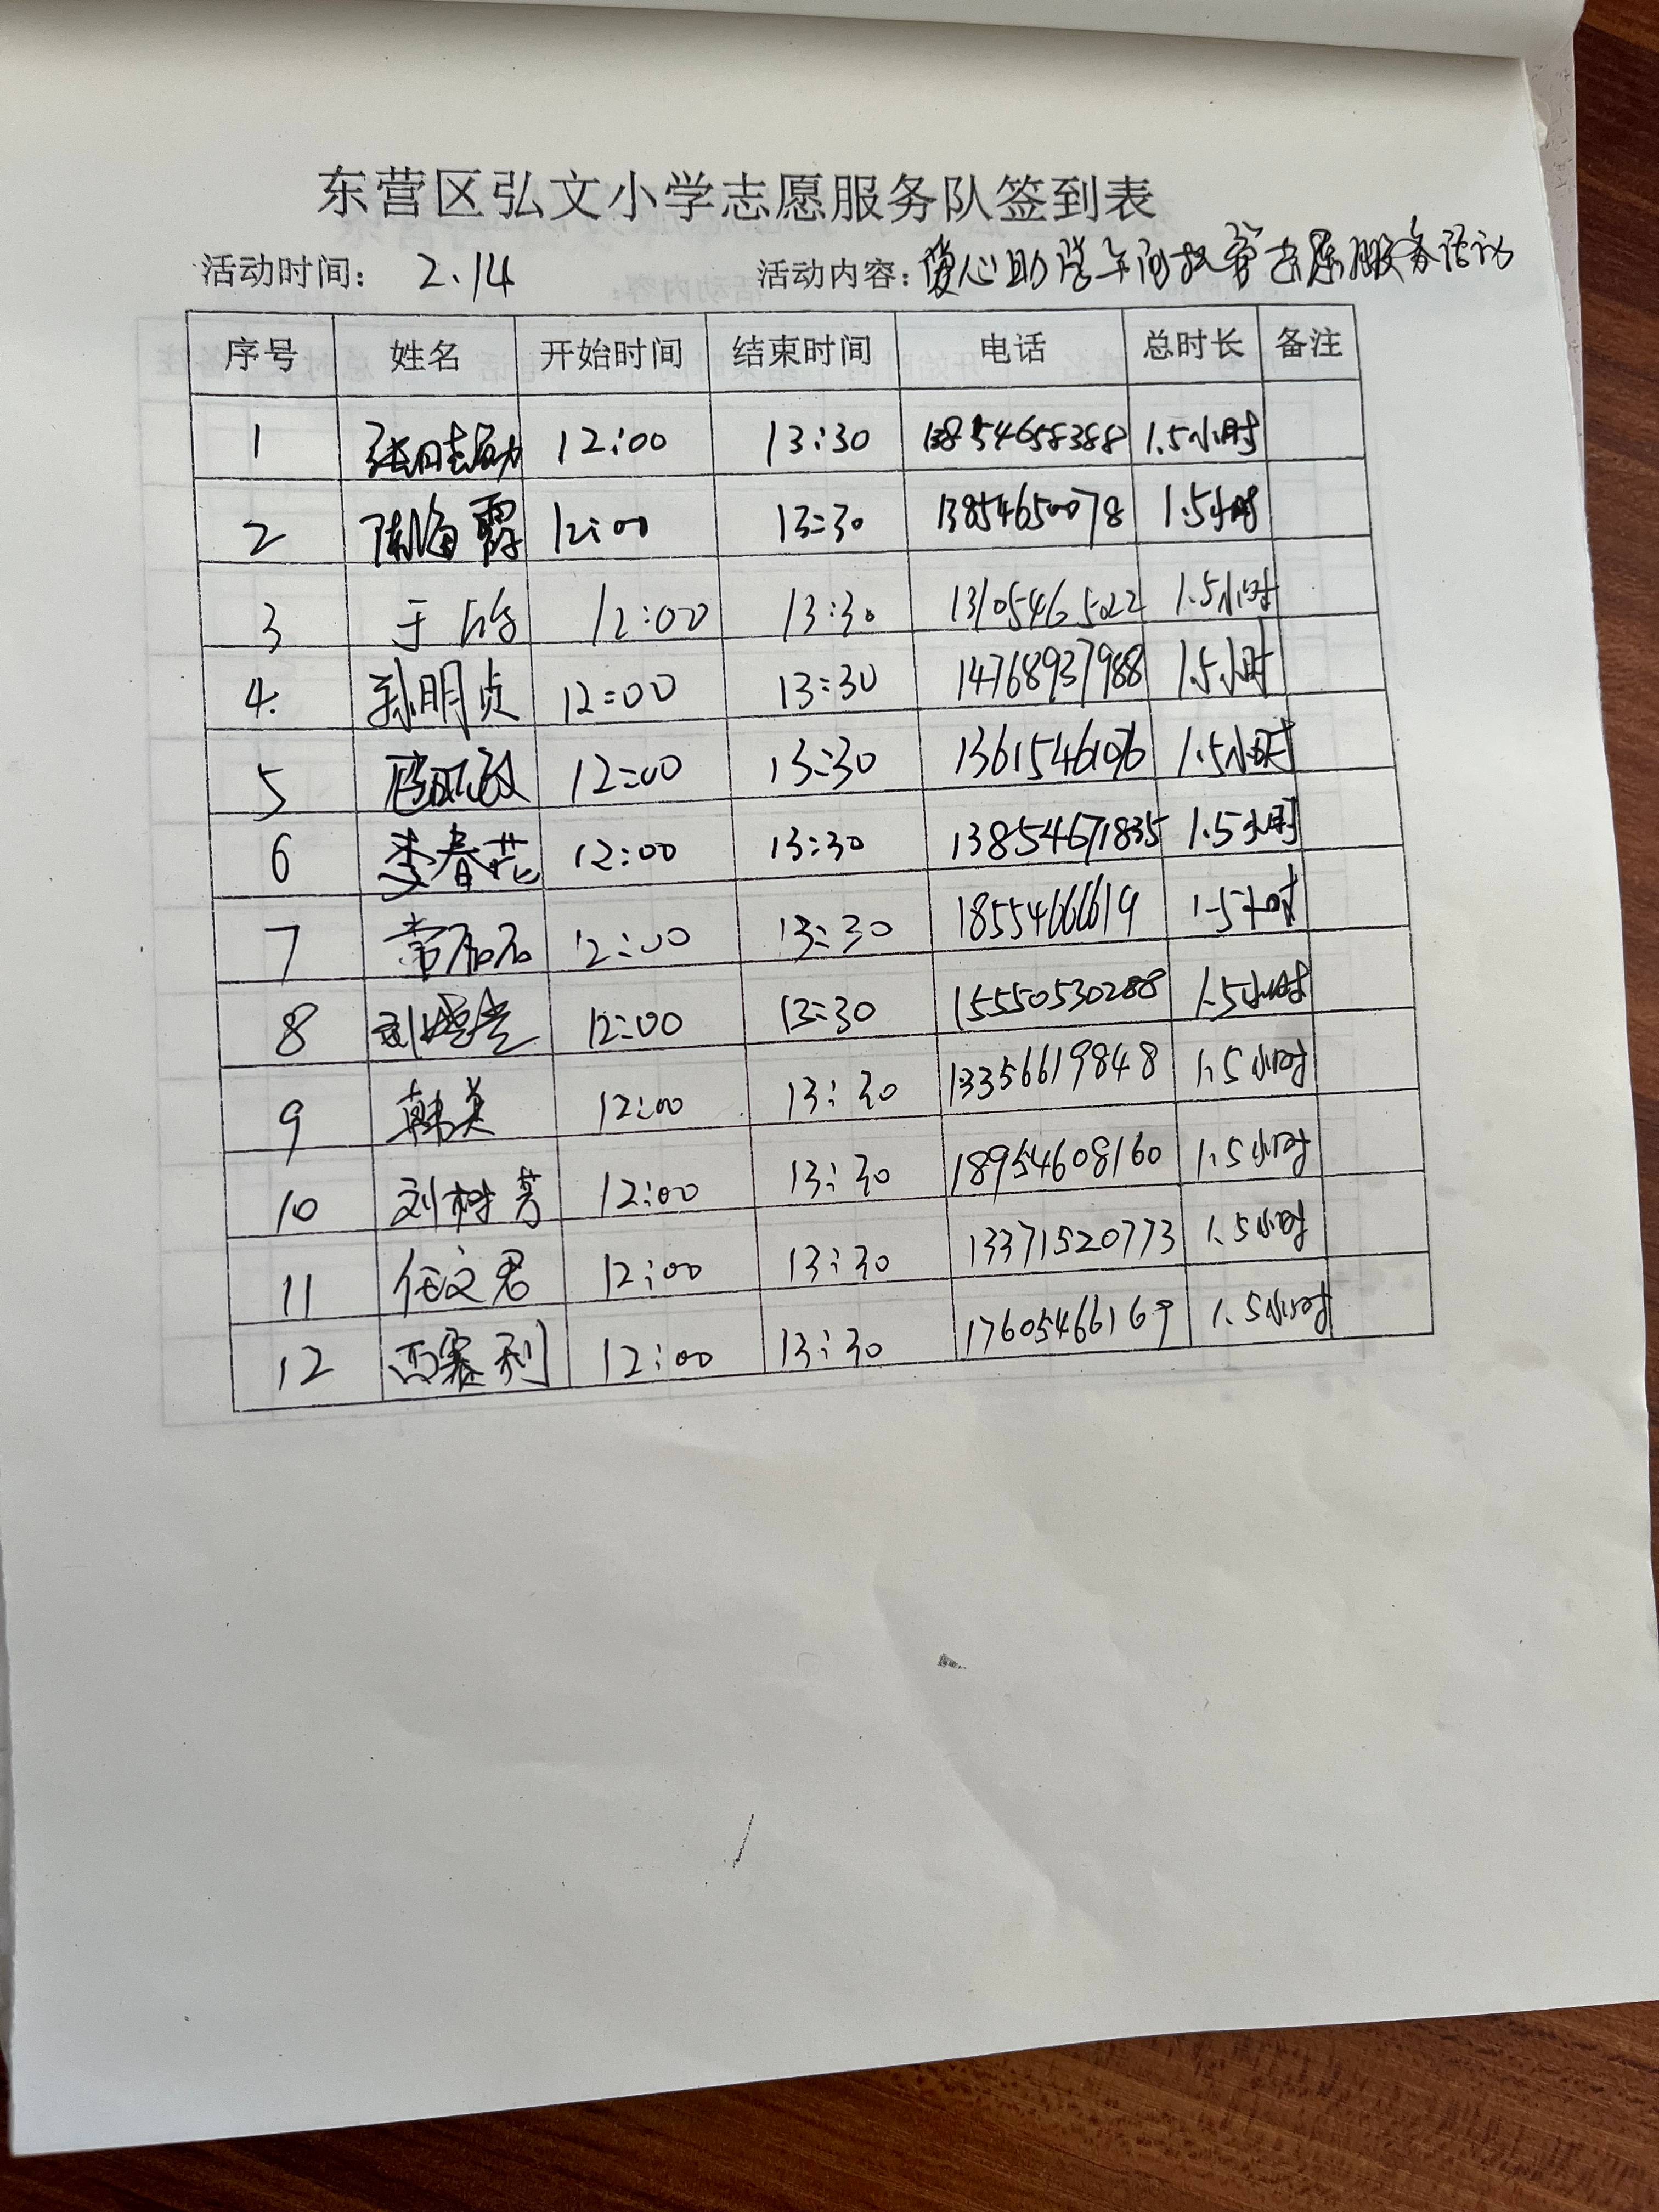 东营区弘文小学志愿服务队签到表
活动时间： 2.14 活动内容：爱心助学午间托管志愿服务活动
序号 姓名 开始时间 结束时间 电话 总时长 备注
1 12:00 13:30 13854658388 1.5小时
2 陈海霞 12:00 13:30 13854650078 1.5小时
3 于 12:00 13:30 1.5小时
4. 孙明贞 12:00 13:30 14768937988 1.5小时
5 12:00 13:30 1.5小时
6 李春芸 12:00 13:30 13854671835 1.5小时
7 常石石 12:00 13:30 18554666619 1.5小时
8 12:00 13:30 15550530288 1.5小时
9 韩英 12:00 13:30 13356619848 1.5小时
10 刘树芳 12:00 13:30 18954608160 1.5小时
11 任文君 12:00 13:30 13371520773 1.5小时
12 西塞利 12:00 13:30 17605466169 1.5小时